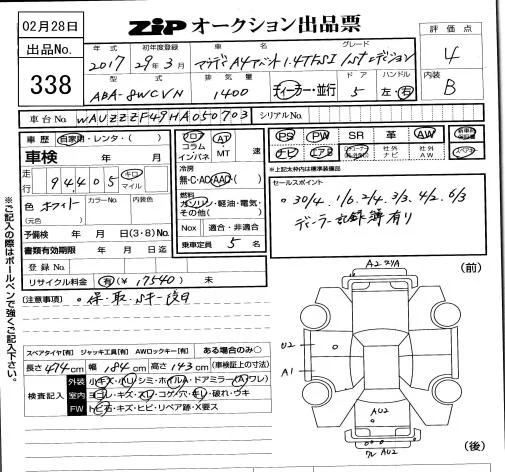 02月28日
出品No.
338
ZIP オークション出品票
評価点
4
内装
B
年式
初年度登録
車名
グレード
2017
29年3月
アウディA4アバント1.4TFSI 1stエディション
型式
排気量
ドア
ハンドル
ABA-8WCVN
1400
ディーラー・並行
5
左・右
車台No.
WAUZZZF49HA050703
シリアルNo.
車歴
自家用・レンタ・( )
車検 年 月
走行
94405
キロ
マイル
色
ホワイト
(元色)
カラーNo.
内装色
予備検 年 月 日(3・8)No.
書類有効期限 年 月 日迄
登録No.
リサイクル料金
有(¥ 17540) 未
フロア
コラム
インパネ
AT
MT
速
冷房
無・C・AC・AAC・( )
燃料
ガソリン・軽油・電気・
その他( )
Nox
適合・非適合
乗車定員 5 名
PS
PW
SR
革
AW
ナビ
エアB
社外
ナビ
社外
AW
スペアキー
*上記太枠内は標準装備品
セールスポイント
。30/4. 1/6. 2/4. 3/3. 4/2. 6/3
ディーラー記録簿有り
(注意事項)
。保・取・Sキー後日
※ご記入の際はボールペンで強くご記入下さい。
スペアタイヤ[有] ジャッキ工具[有] AWロックキー[有] ある場合のみ○
長さ 474cm 幅 184cm 高さ 143cm (車検証上の寸法)
検査記入
外装
小キズ・小U・シミ・ホイルA・ドアミラー(A・ワレ)
室内
ヨゴレ・キズ・スレ・コゲ・穴・キレ・破れ・ウキ
FW
トビ石・キズ・ヒビ・リペア跡・X要ス
(前)
A2
U2
A1
AU2
AU2
(後)